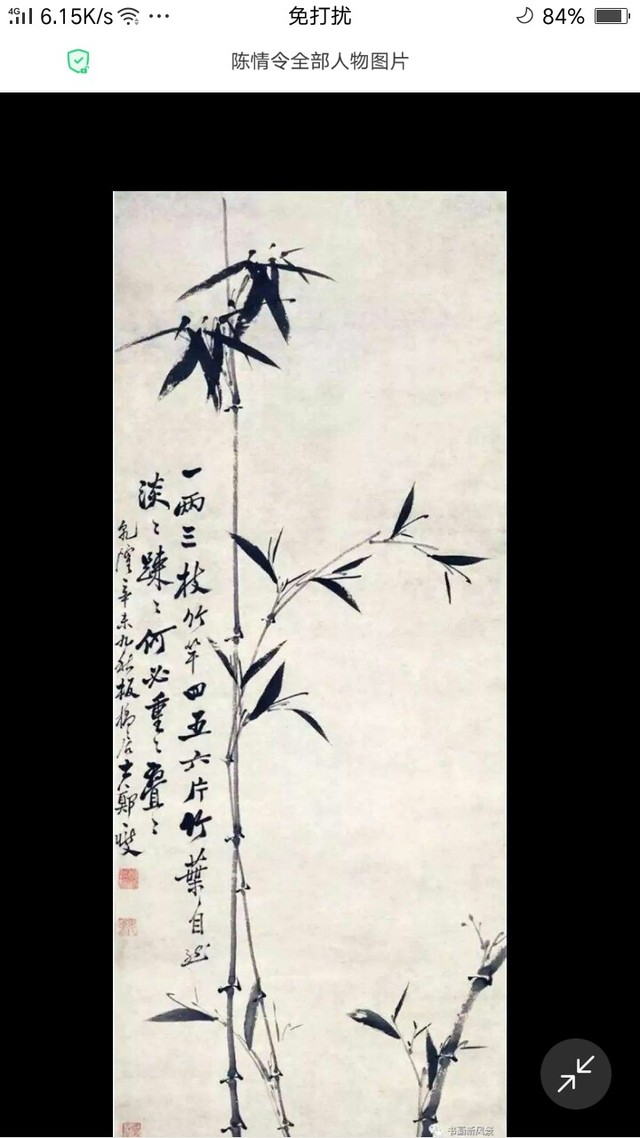 4G 6.15K/s 免打扰 84%
陈情令全部人物图片
一两三枝竹竿四五六片竹葉自然
淡〻疎〻何必重〻叠〻
乾隆辛未九秋板橋居士鄭燮
书画新风景